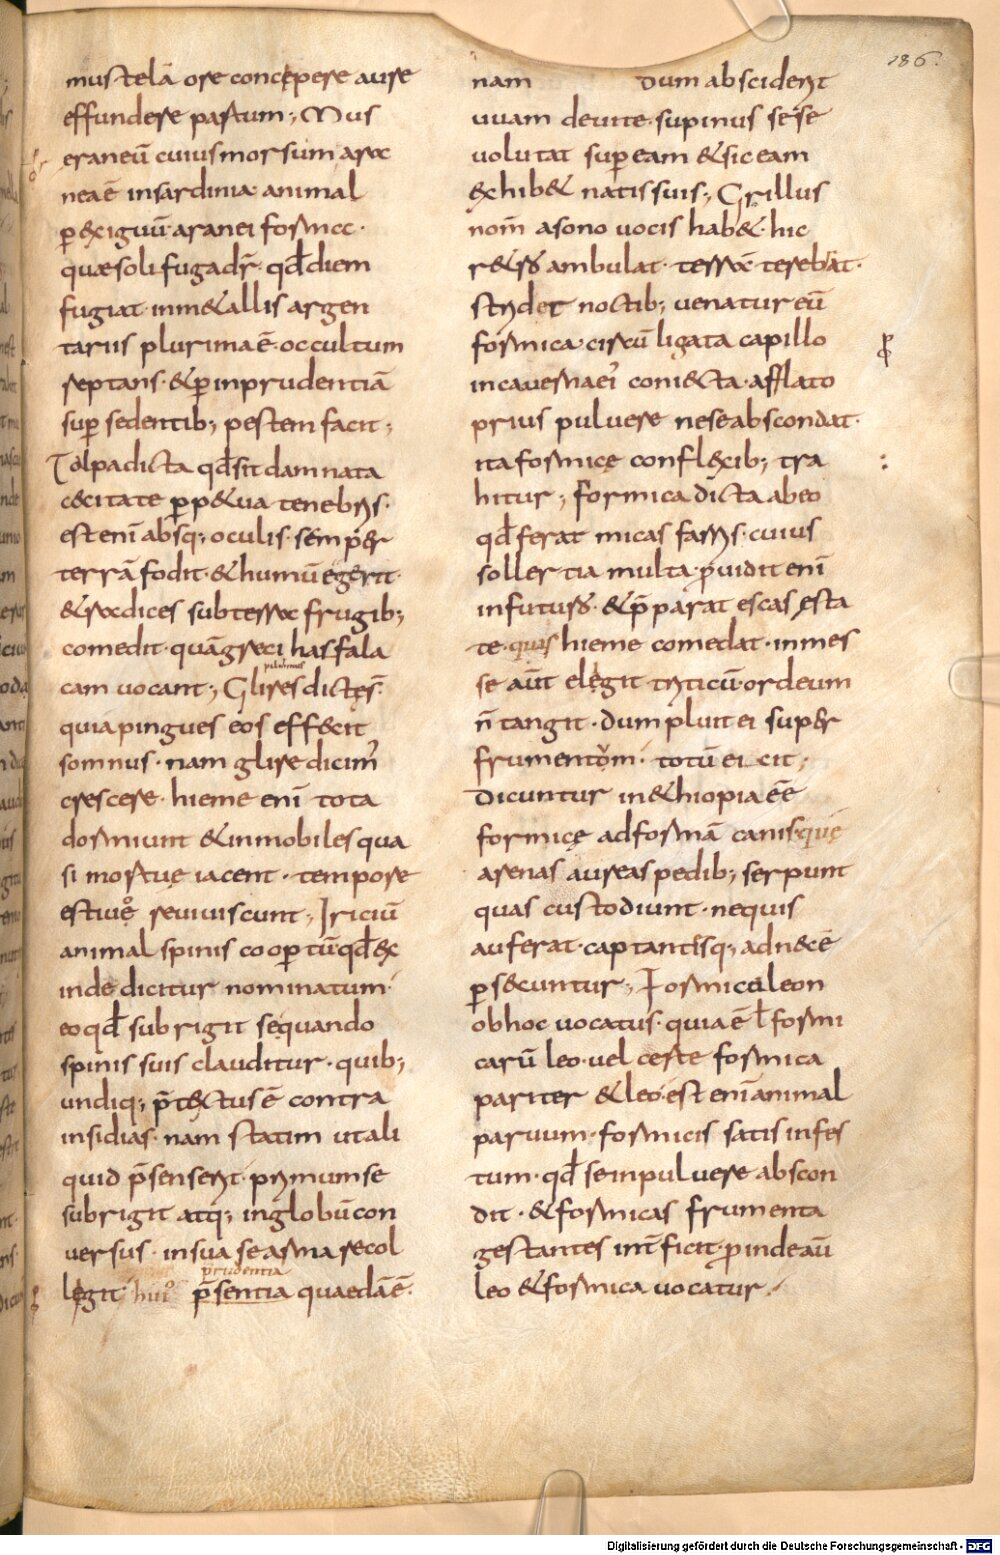 186.
mustelā ore concepere aure
effundere partum; Mus
eraneū cuius morsum ara
nea ē insardinia animal
p exiguū aranei forma ·
quae soli fugadr̄· qđ diem
fugiat· inmetallis argen
tariis plurima ē· occultum
reptans· & p inprudentiā
sup sedentib; pestem facit;
Talpa dicta qđ sit damnata
cęcitate ppetua tenebris·
est enī absq; oculis· semper
terrā fodit· & humū egerit·
& radices subterra frugib;
comedit· quā greci hasfala
cam vocant; Glires dictęs·
quia pingues eos effecit
somnus· nam glire dicim'
crescere· hieme enī tota
dormiunt & inmobiles qua
si mortuę iacent· tempore
estiuę reuiuiscunt; Iriciū
animal spinis coopertū qđ ex
inde dicitur nominatum·
eo qđ subrigit se quando
spinis suis clauditur· quib;
undiq; p̄tectus ē contra
insidias· nam statim ut ali
quid p̄senserit· primum se
subrigit atq; inglobū con
versus· insua se arma recol
prudentia
legit· hui' p̄sentia quaedā ē·
nam dum absciderit
uuam de uite· supinus sese
uolutat sup eam & sic eam
exhibet natis suis; Grillus
nom̄ a sono uocis habet· hic
retror ambulat· terrā terebrat·
stridet noctib; venatur eū
formica circū ligata capillo
incauerna ei' coniecta· afflato
prius puluere ne se abscondat·
ita formicę conflexib; tra
hitur; formica dicta ab eo
qđ ferat micas farris· cuius
sollertia multa· puidit enī
infuturū· & p̄parat escas ęsta
te quas hieme comedat· inmes
se aūt elegit triticū· ordeum
n̄ tangit· dum pluit ei super
frumentum· totū eicit;
Dicuntur in ethiopia ēē
formicę ad formā canis quę
arenas aureas pedib; serpunt
quas custodiunt· nequis
auferat· captantisq; ad necē
psecuntur; Formicaleon
ob hoc uocatus· quia ē ł formi
carū leo· uel certe formica
pariter & leo· est enī animal
paruum· formicis satis infes
tum· qđ se in puluere abscon
dit· & formicas frumenta
gestantes int̄ficit· pinde aū
leo & formica uocatur·
Digitalisierung gefördert durch die Deutsche Forschungsgemeinschaft - DFG